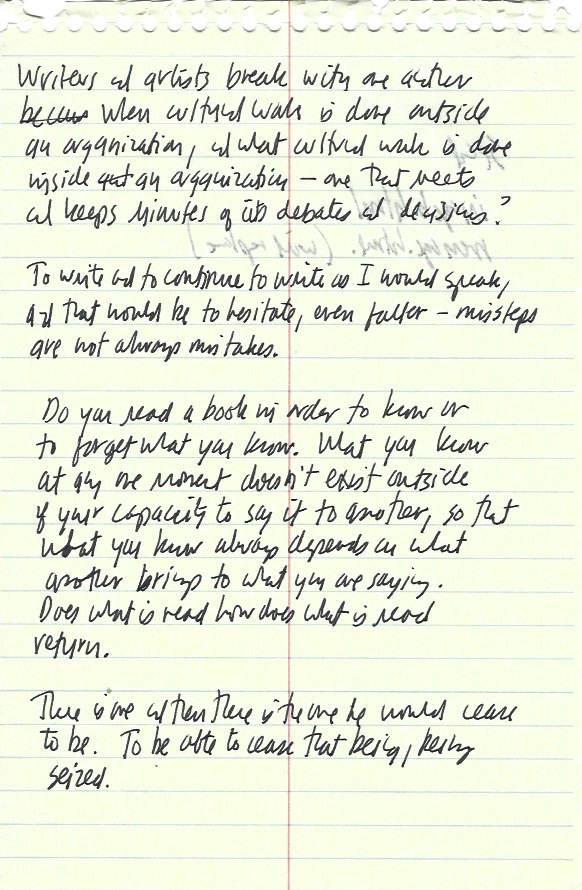 Writers and artists break with one another
becaus when cultural work is done outside
an organization, and what cultural work is done
inside an organization – one that meets
and keeps minutes of its debates and decisions?
To write and to continue to write as I would speak,
and that would be to hesitate, even falter – missteps
are not always mistakes.
Do you read a book in order to know or
to forget what you know. What you know
at any one moment doesn't exist outside
of your capacity to say it to another, so that
what you know always depends on what
another brings to what you are saying.
Does what is read how does what is read
return.
There is one and then there is the one he would cease
to be. To be able to cease that being, being
seized.